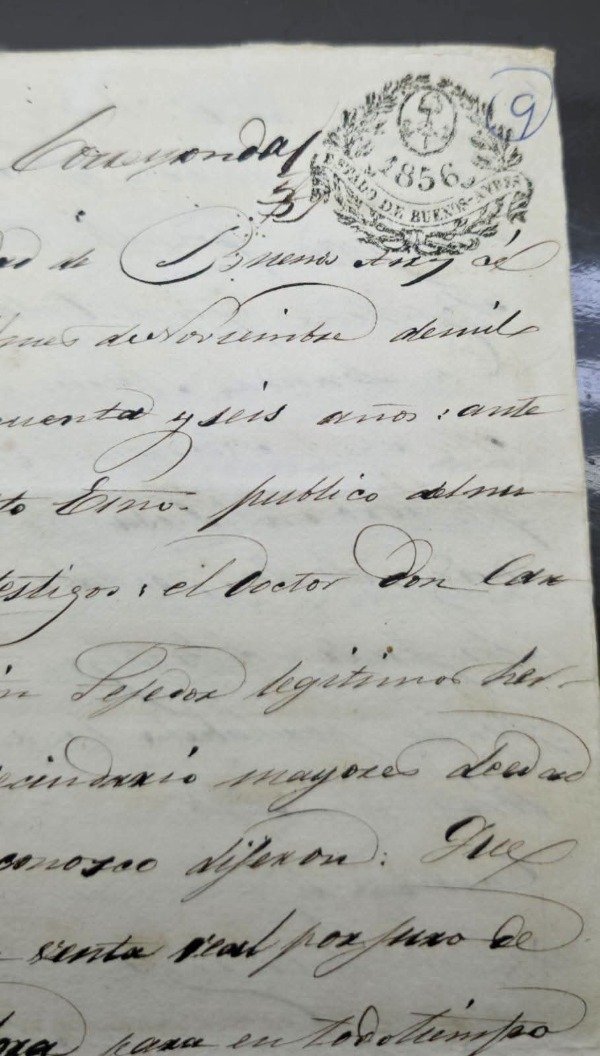 9
1856
ESTADO DE BUENOS-AYRES
Corresponda
de Buenos Ay á
mes de Noviembre de mil
cuenta y seis años: ante
to Essño. publico del nu
testigos; el Doctor Don Car
in Tejedor legitimos her-
ecindario mayores de edad
conosco dijeron: Que
venta real por juro de
para en todo tiempo